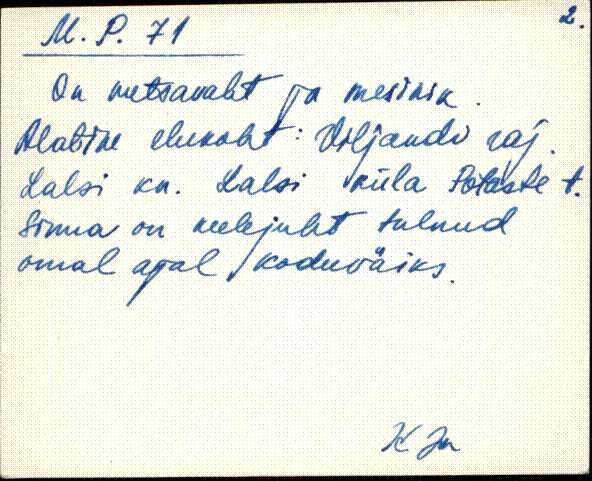 2.
M. P. 71
On metsavaht ja mesinik.
Alaline elukoht: Viljandi raj.
Lalsi kn. Lalsi küla Potaste t.
Sinna on keelejuht tulnud
omal ajal koduväiks.
K Ju